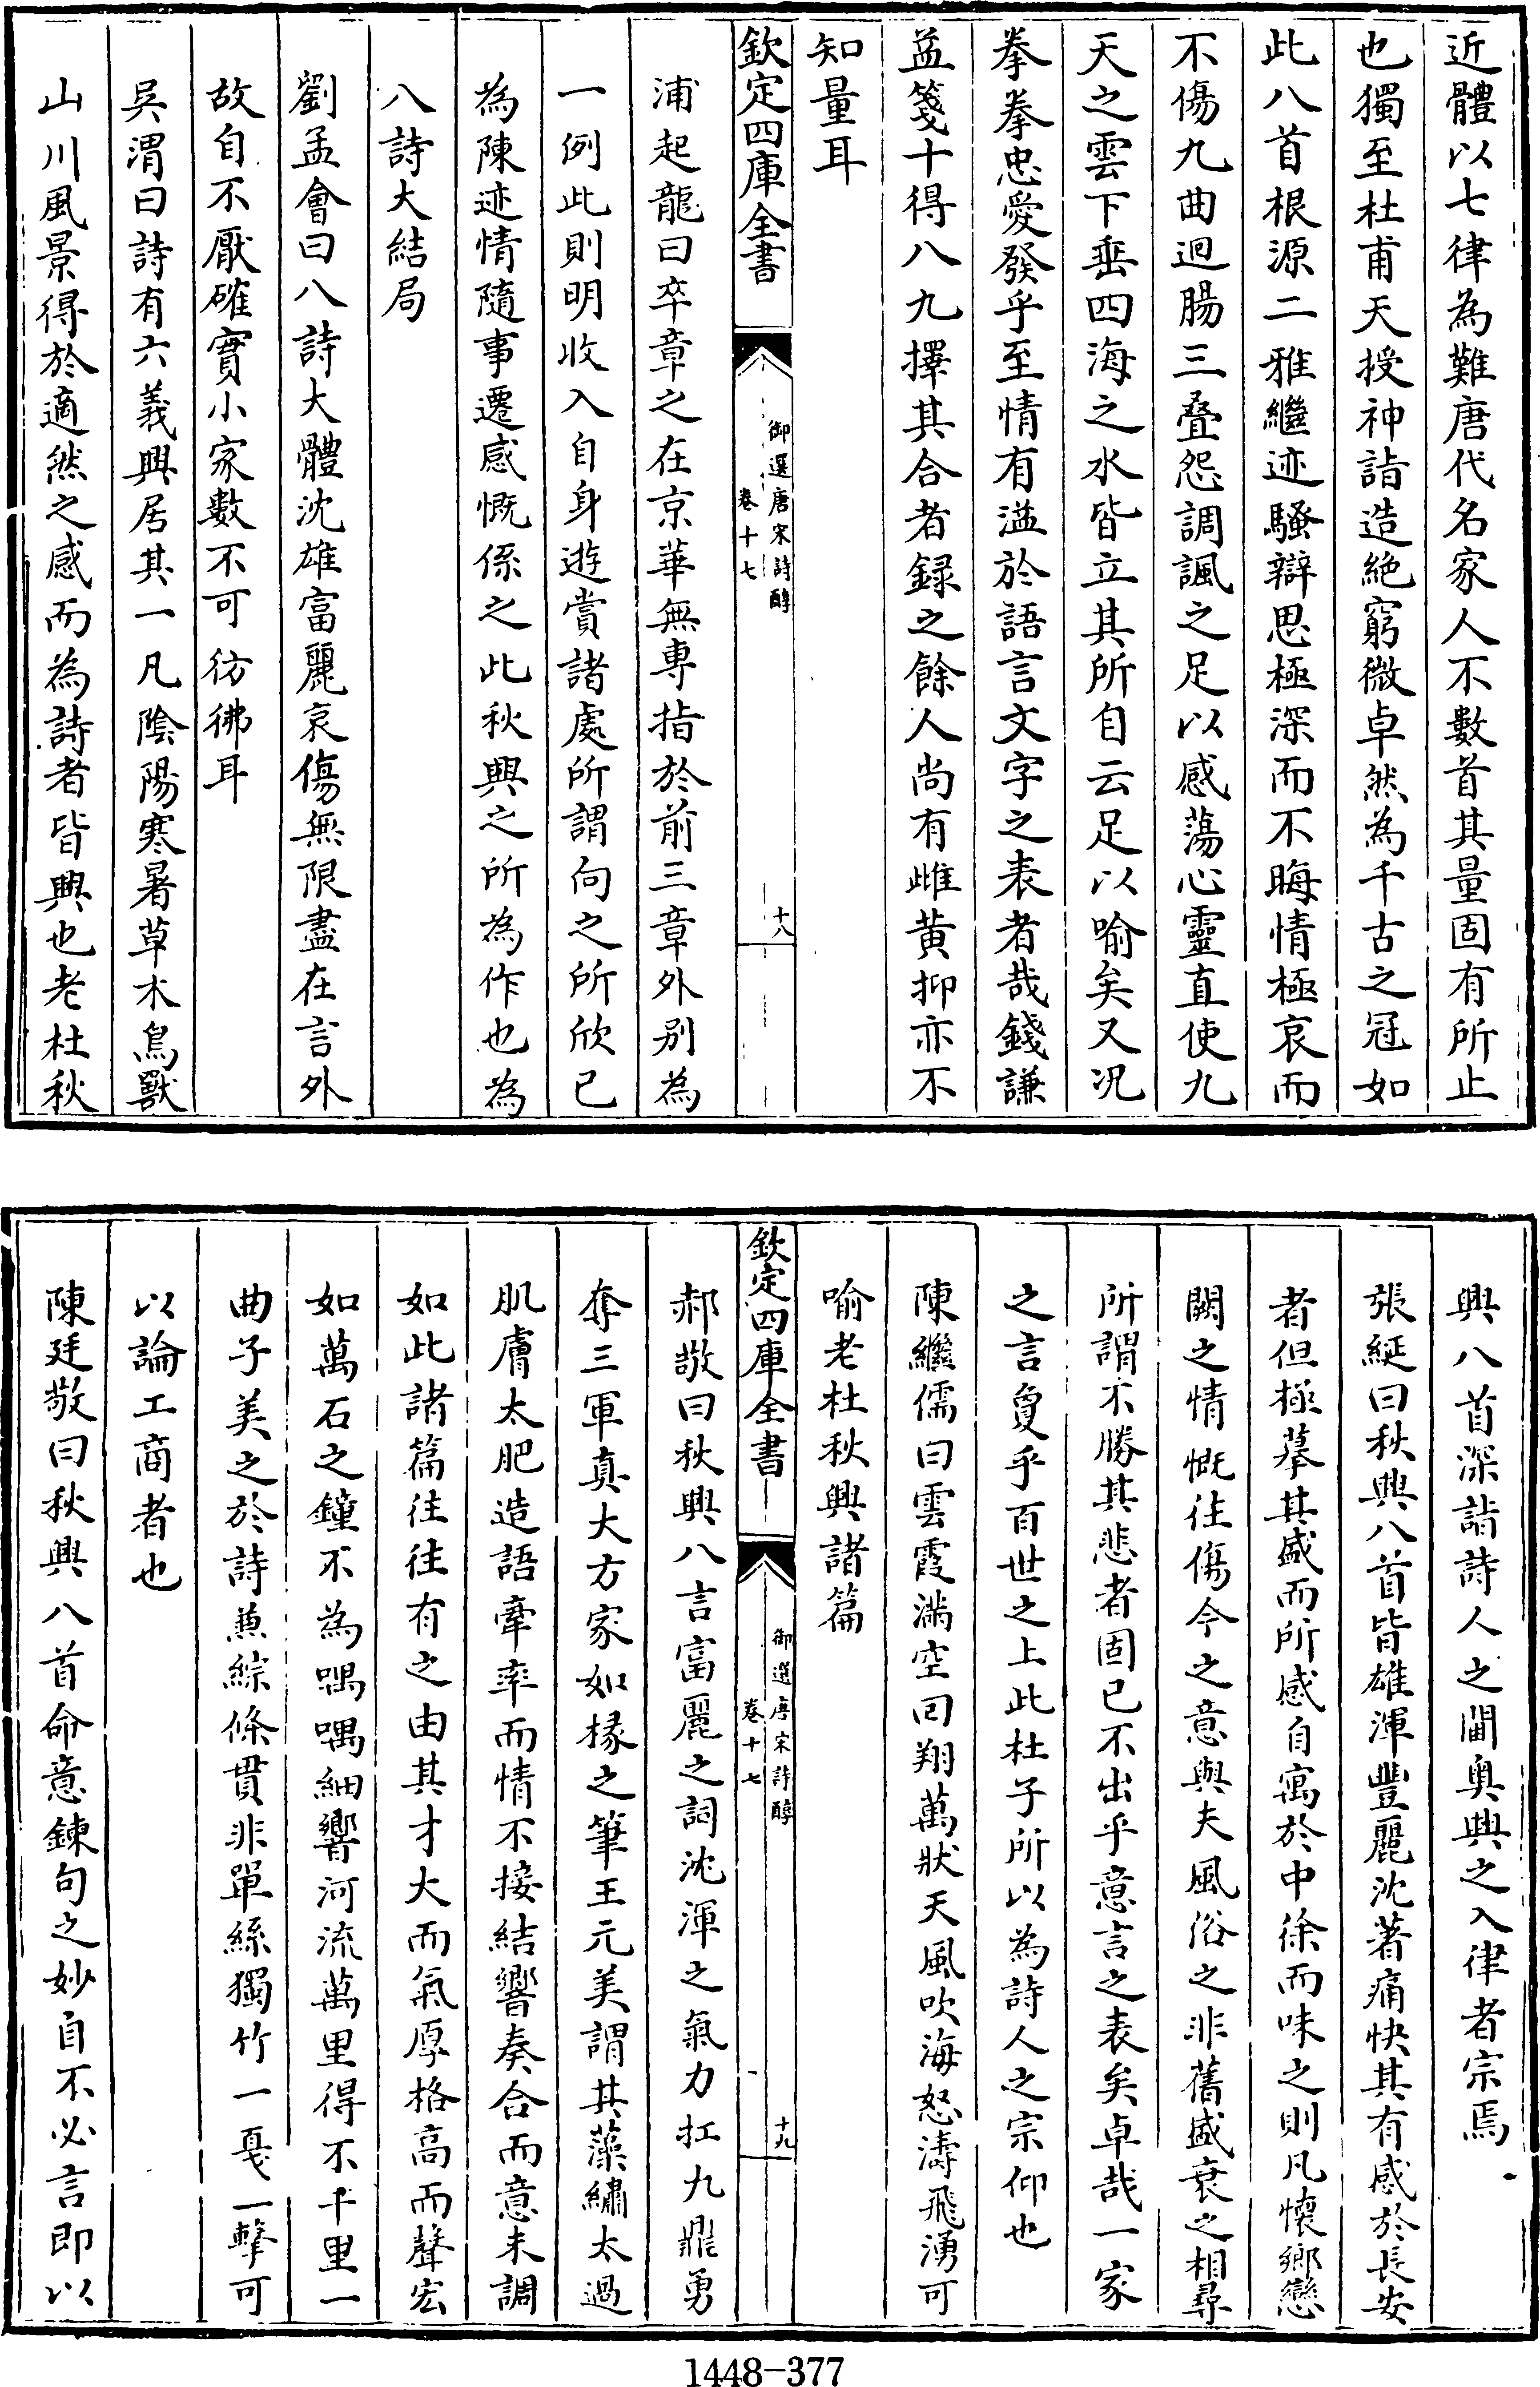 近體以七律為難唐代名家人不數首其量固有所止
也獨至杜甫天授神詣造絶窮微卓然為千古之冠如
此八首根源二雅繼迹騷辯思極深而不晦情極哀而
不傷九曲迴腸三叠怨調諷之足以感蕩心靈直使九
天之雲下垂四海之水皆立其所自云足以喻矣又况
拳拳忠愛發乎至情有溢於語言文字之表者哉錢謙
益箋十得八九擇其合者録之餘人尚有雌黄抑亦不
知量耳
欽定四庫全書
御選唐宋詩醇
卷十七
十八
浦起龍曰卒章之在京華無專指於前三章外别為
一例此則明收入自身遊賞諸處所謂向之所欣已
為陳迹情隨事遷感慨係之此秋興之所為作也為
八詩大結局
劉孟會曰八詩大體沈雄富麗哀傷無限盡在言外
故自不厭確實小家數不可彷彿耳
吳渭曰詩有六義興居其一凡陰陽寒暑草木鳥獸
山川風景得於適然之感而為詩者皆興也老杜秋
興八首深詣詩人之閫奥興之入律者宗焉
張綖曰秋興八首皆雄渾豐麗沈著痛快其有感於長安
者但極摹其盛而所感自寓於中徐而味之則凡懷鄉戀
闕之情慨往傷今之意與夫風俗之非舊盛衰之相尋
所謂不勝其悲者固已不出乎意言之表矣卓哉一家
之言敻乎百世之上此杜子所以為詩人之宗仰也
陳繼儒曰雲霞滿空回翔萬狀天風吹海怒濤飛湧可
喻老杜秋興諸篇
欽定四庫全書
御選唐宋詩醇
卷十七
十九
郝敬曰秋興八言富麗之詞沈渾之氣力扛九鼎勇
奪三軍真大方家如椽之筆王元美謂其藻繡太過
肌膚太肥造語牽率而情不接結響奏合而意未調
如此諸篇往往有之由其才大而氣厚格高而聲宏
如萬石之鐘不為喁喁細響河流萬里得不千里一
曲子美之於詩兼綜條貫非單絲獨竹一戛一擊可
以論工商者也
陳廷敬曰秋興八首命意鍊句之妙自不必言即以
1448-377